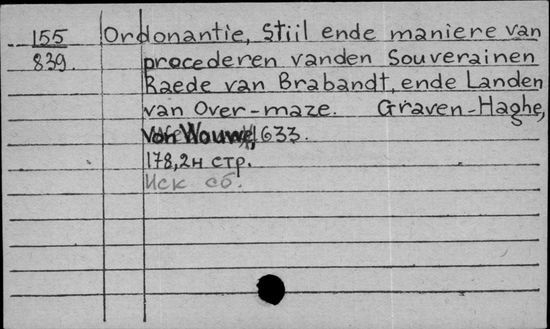 155 Ordonantie, Stiil ende maniere van
839. procederen vanden Souverainen
Raede van Brabandt, ende Landen
van Over-maze. Graven-Haghe,
van Wouwe, 1633.
178, 2н стр.
Иск сб.